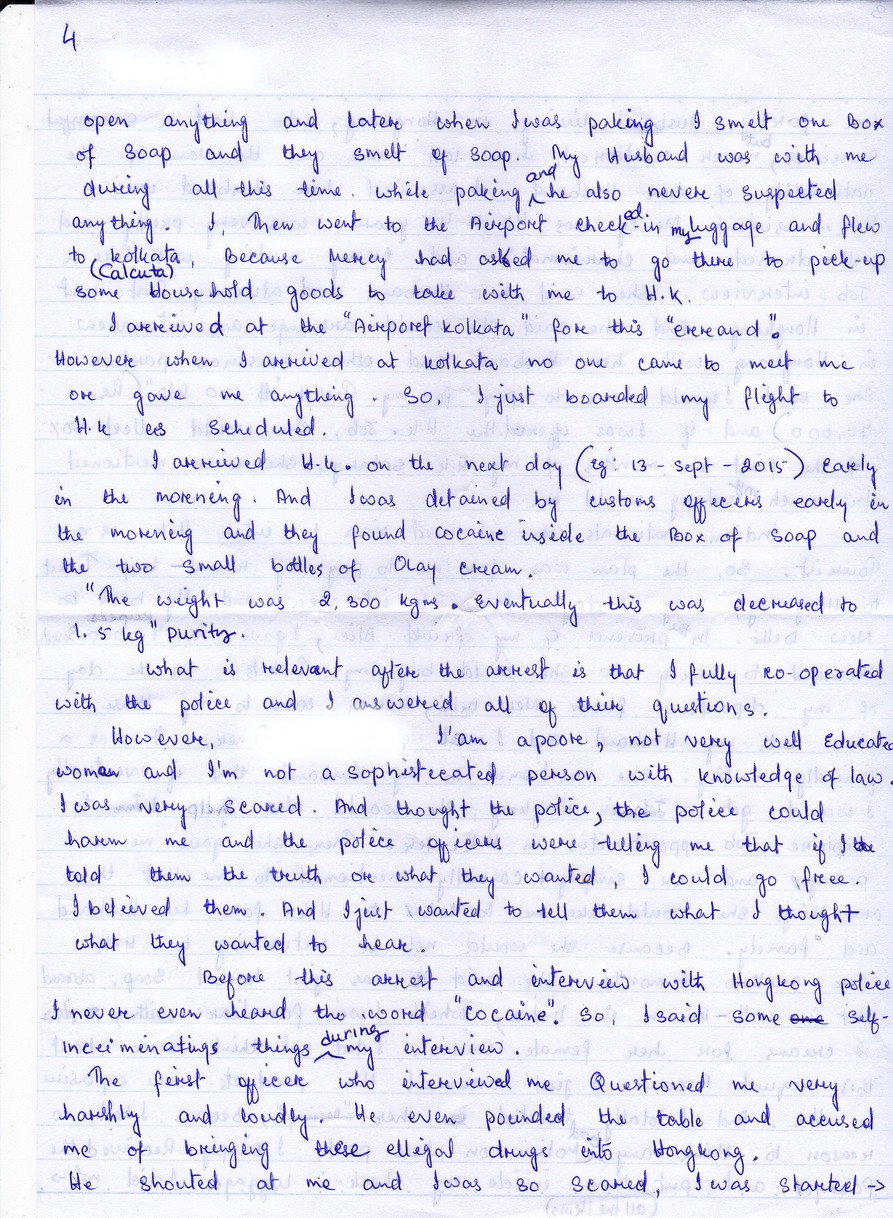 4
open anything and later when I was paking I smelt one Box
of Soap and they smelt of Soap. My Husband was with me
during all this time. while paking and he also never suspected
anything. I, Then went to the Airport checked-in my luggage and flew
to kolkata, Because Mercy had asked me to go there to pick-up
(Calcuta)
some House hold goods to take with me to H.K.
I arreived at the "Airport kolkata" for this "errand".
However when I arrived at kolkata no one came to meet me
or gave me anything. So, I just boarded my flight to
H.k es Scheduled.
I arreived H.k. on the next day (eg: 13 - sept - 2015) Early
in the morening. And I was detained by customs officers early in
the morening and they found cocaine inside the Box of Soap and
the two small bottles of Olay cream.
"The weight was 2,300 kgms. Eventually this was decreased to
1.5 kg" purity.
what is relevant after the arrest is that I fully co-operated
with the police and I answered all of their questions.
However, I'am a poor, not very well Educated
women and I'm not a sophistecated person with knowledge of law.
I was very Scared. And thought the police, the police could
harm me and the police officers were telling me that if I
told them the truth or what they wanted, I could go free.
I beleived them. And I just wanted to tell them what I thought
what they wanted to hear.
Before this arrest and interview with Hongkong police
I never even heard the word "Cocaine". So, I said some one self-
inceimenatings things during my interview.
The first officer who interviewed me Questioned me very
harshly and loudly. He even pounded the table and accused
me of bringing these ellegal drugs into Hongkong.
He Shouted at me and I was so Scared, I was Started →